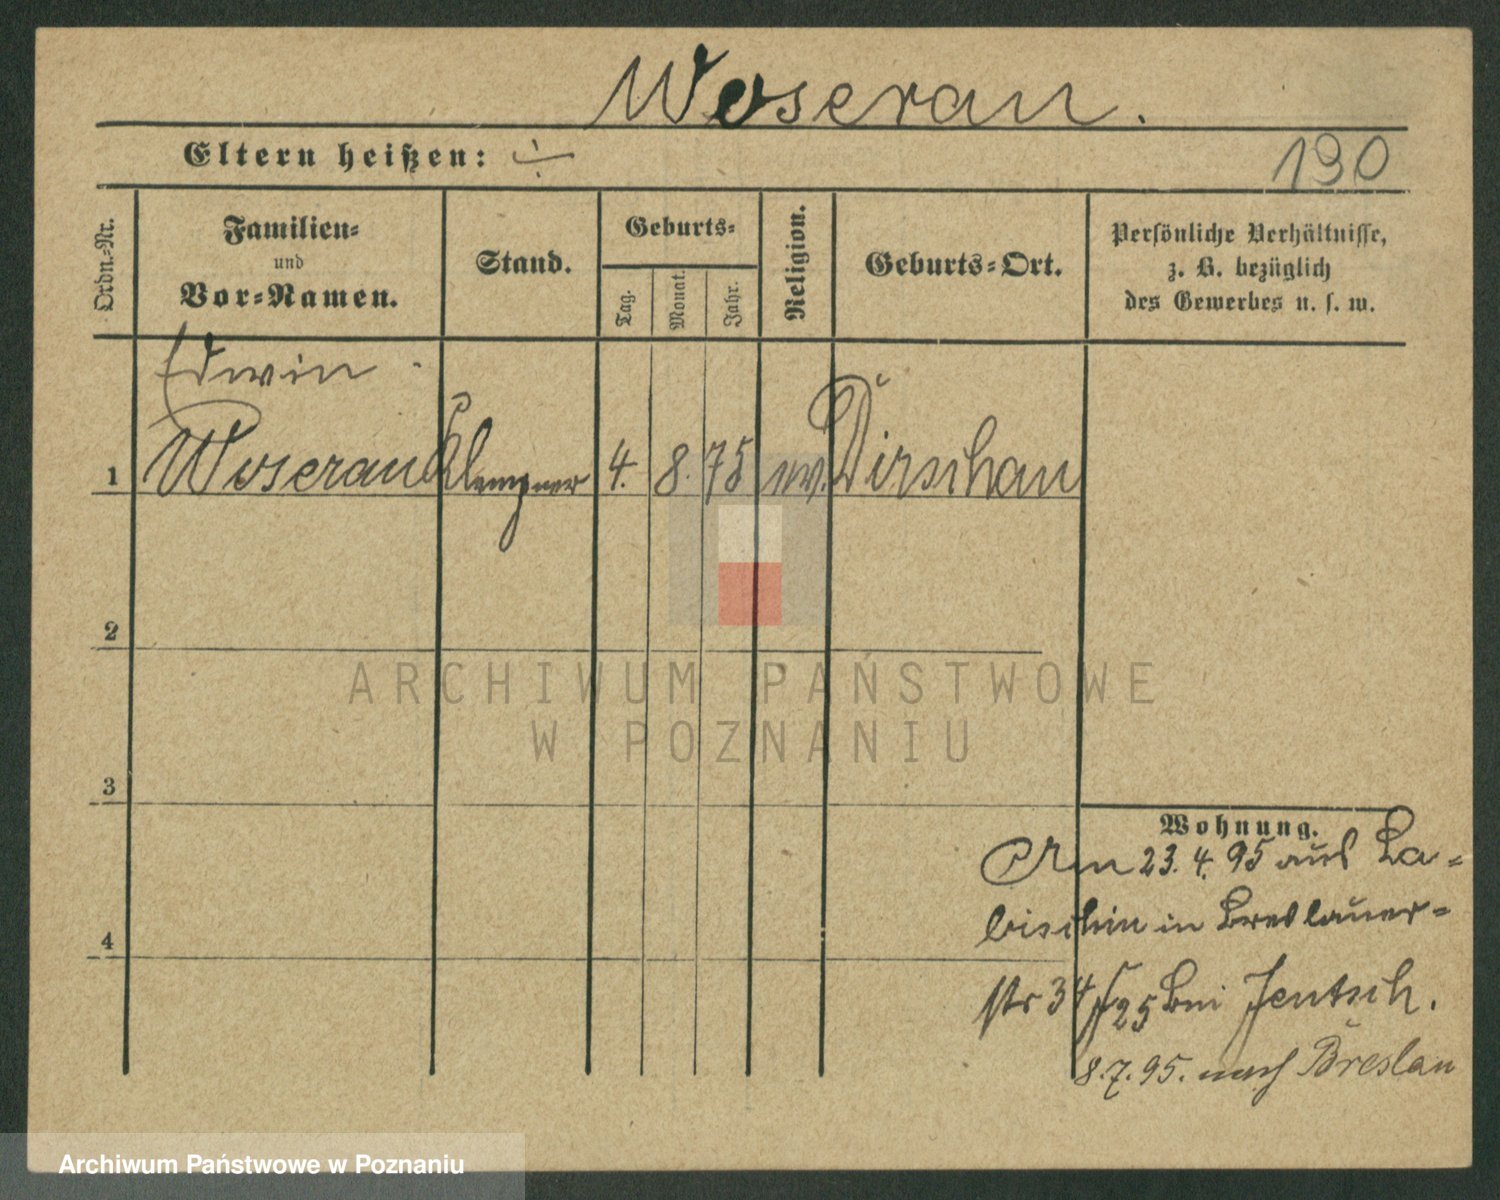 Woserau.
Eltern heißen: ÷
190
Ordn.-Nr.
Familien-
und
Vor-Namen.
Stand.
Geburts-
Tag.
Monat.
Jahr.
Religion.
Geburts-Ort.
Persönliche Verhältnisse,
z. B. bezüglich
des Gewerbes u. s. w.
Edwin
1 Woserau Klempner 4. 8. 75 Dirschau
2
ARCHIWUM PAŃSTWOWE
W POZNANIU
3
Wohnung.
Am 23. 4. 95 aus La-
4
bischin in Breslauer-
str 34/35 bei Jentsch.
8.7.95. nach Breslau
Archiwum Państwowe w Poznaniu